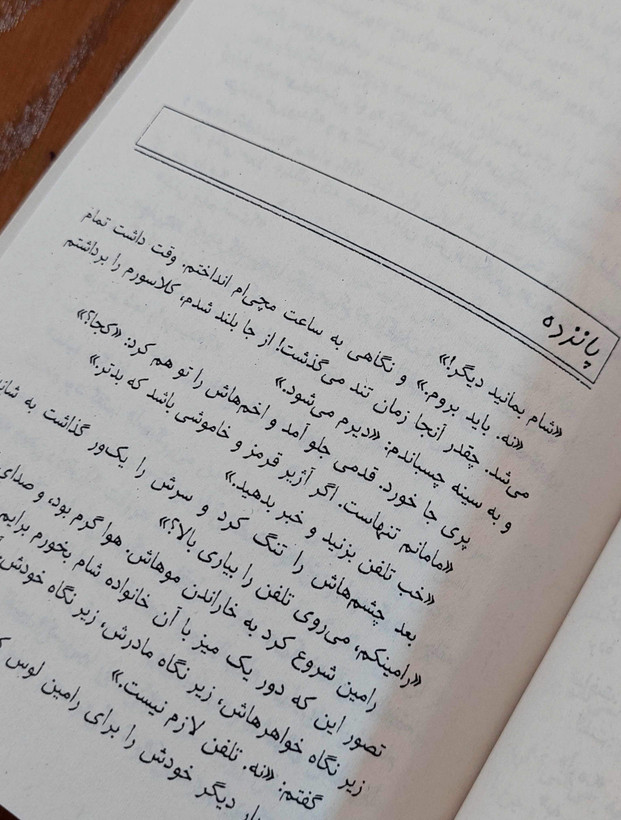 پانزده
«شام بمانید دیگر!»
«نه. باید بروم.» و نگاهی به ساعت مچی‌ام انداختم. وقت داشت تمام
می‌شد. چقدر آنجا زمان تند می‌گذشت! از جا بلند شدم، کلاسورم را برداشتم
و به سینه چسباندم: «دیرم می‌شود.»
پری جا خورد. قدمی جلو آمد و اخم‌هاش را تو هم کرد: «کجا؟»
«مامانم تنهاست. اگر آژیر قرمز و خاموشی باشد که بدتر.»
«خب تلفن بزنید و خبر بدهید.»
بعد چشم‌هاش را تنگ کرد و سرش را یک‌ور گذاشت به
«رامینکم، می‌روی تلفن را بیاری بالا؟»
رامین شروع کرد به خاراندن موهاش. هوا گرم بود، و صدای
تصور این که دور یک میز با آن خانواده شام بخورم برایم
زیر نگاه خواهرهاش، زیر نگاه مادرش، زیر نگاه خودش،
گفتم: «نه. تلفن لازم نیست.»
دیگر خودش را برای رامین لوس